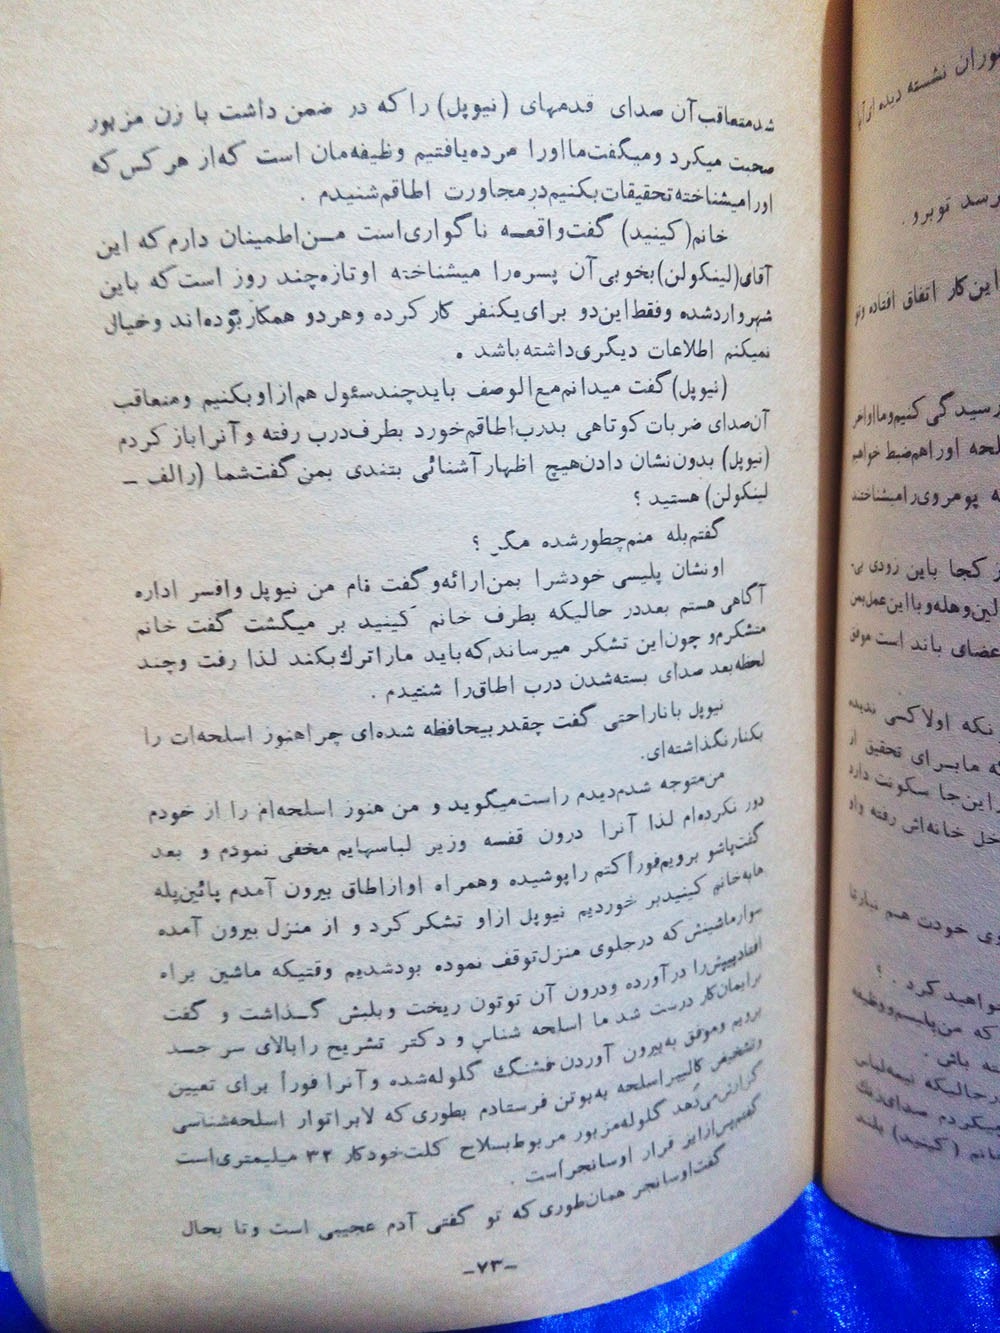 شد متعاقب آن صدای قدمهای (نیوپل) را که در ضمن داشت با زن مزبور
صحبت میکرد ومیگفت ما اورا مرده یافتیم وظیفه مان است که از هر کس که
اورا میشناخته تحقیقات بکنیم در مجاورت اطاقم شنیدم .
خانم (کینید) گفت واقعه ناگواری است من اطمینان دارم که این
آقای (لینکولن) بخوبی آن پسره را میشناخته او تازه چند روز است که باین
شهر وارد شده و فقط این دو برای یکنفر کار کرده وهر دو همکار بوده اند وخیال
نمیکنم اطلاعات دیگری داشته باشد .
(نیوپل) گفت میدانم مع الوصف باید چند سئول هم از او بکنیم ومتعاقب
آن صدای ضربات کوتاهی بدرب اطاقم خورد بطرف درب رفته و آنرا باز کردم
(نیوپل) بدون نشان دادن هیچ اظهار آشنائی بتندی بمن گفت شما (رالف -
لینکولن) هستید ؟
گفتم بله منم چطور شده مگر ؟
او نشان پلیسی خودش را بمن ارائه و گفت نام من نیوپل وافسر اداره
آگاهی هستم بعد در حالیکه بطرف خانم کینید بر میگشت گفت خانم
متشکرم و چون این تشکر میرساند که باید مارا ترك بکند لذا رفت وچند
لحظه بعد صدای بسته شدن درب اطاق را شنیدم .
نیوپل با ناراحتی گفت چقدر بیحافظه شده ای چرا هنوز اسلحه ات را
بکنار نگذاشته ای.
من متوجه شدم دیدم راست میگوید و من هنوز اسلحه ام را از خودم
دور نکرده ام لذا آنرا درون قفسه وزیر لباسهایم مخفی نمودم و بعد
گفت پاشو برویم فوراً کتم را پوشیده وهمراه او از اطاق بیرون آمدم پائین پله
ها به خانم کینید بر خوردیم نیوپل از او تشکر کرد و از منزل بیرون آمده
سوار ماشینش که در جلوی منزل توقف نموده بود شدیم وقتیکه ماشین براه
افتاد پیپش را در آورده ودرون آن توتون ریخت وبلبش گذاشت و گفت
برایمان کار درست شد ما اسلحه شناس و دکتر تشریح را بالای سر جسد
بردیم وموفق به بیرون آوردن فشنگ گلوله شده و آنرا فوراً برای تعیین
وتشخیص کالیبر اسلحه به بوتن فرستادم بطوری که لابراتوار اسلحه شناسی
گزارش می دهد گلوله مزبور مربوط بسلاح کلت خودکار ۳۲ میلیمتری است
گفتم پس از این قرار اوسانجر است .
گفت اوسانجر همان طوری که تو گفتی آدم عجیبی است وتا بحال
-۷۳-
وران نشسته دیده ای
رسد تو برو .
این کار اتفاق افتاده وتو
رسیدگی کنیم وما اواخر
لحه اورا هم ضبط خواهیم
ه پومروی را میشناختند
ز کجا باین زودی بی.
لین وهله و با این عمل بمن
عضای باند است موفق
نکه اولا کسی ندیده
ه ما برای تحقیق از
این جا سکونت دارد
خل خانه اش رفته واو
ی خودت هم نیاری
واهید کرد . ؟
که من پلیسم ووظیفه
ته باش .
رحالیکه نیمه لباس
میکردم صدای
انم (کینید) بلند